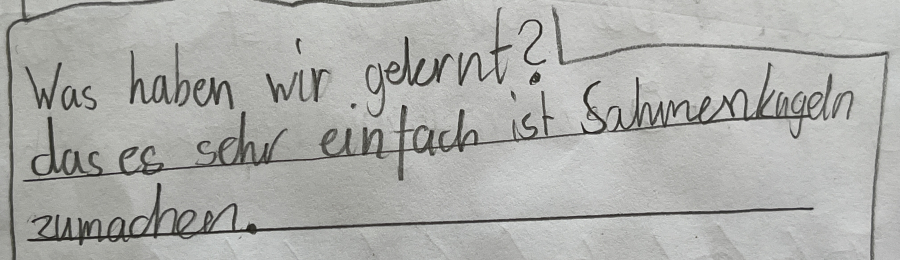 Was haben wir gelernt?
das es sehr einfach ist Sahmenkugeln
zumachen.